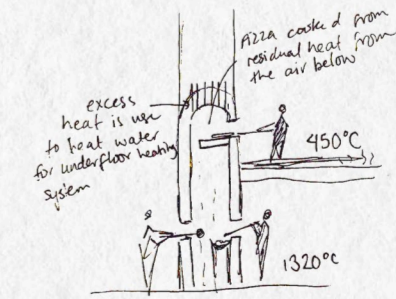 Pizza cooked from
residual heat from
the air below
excess
heat is use
to heat water
for underfloor heating
system
450°C
1320°C